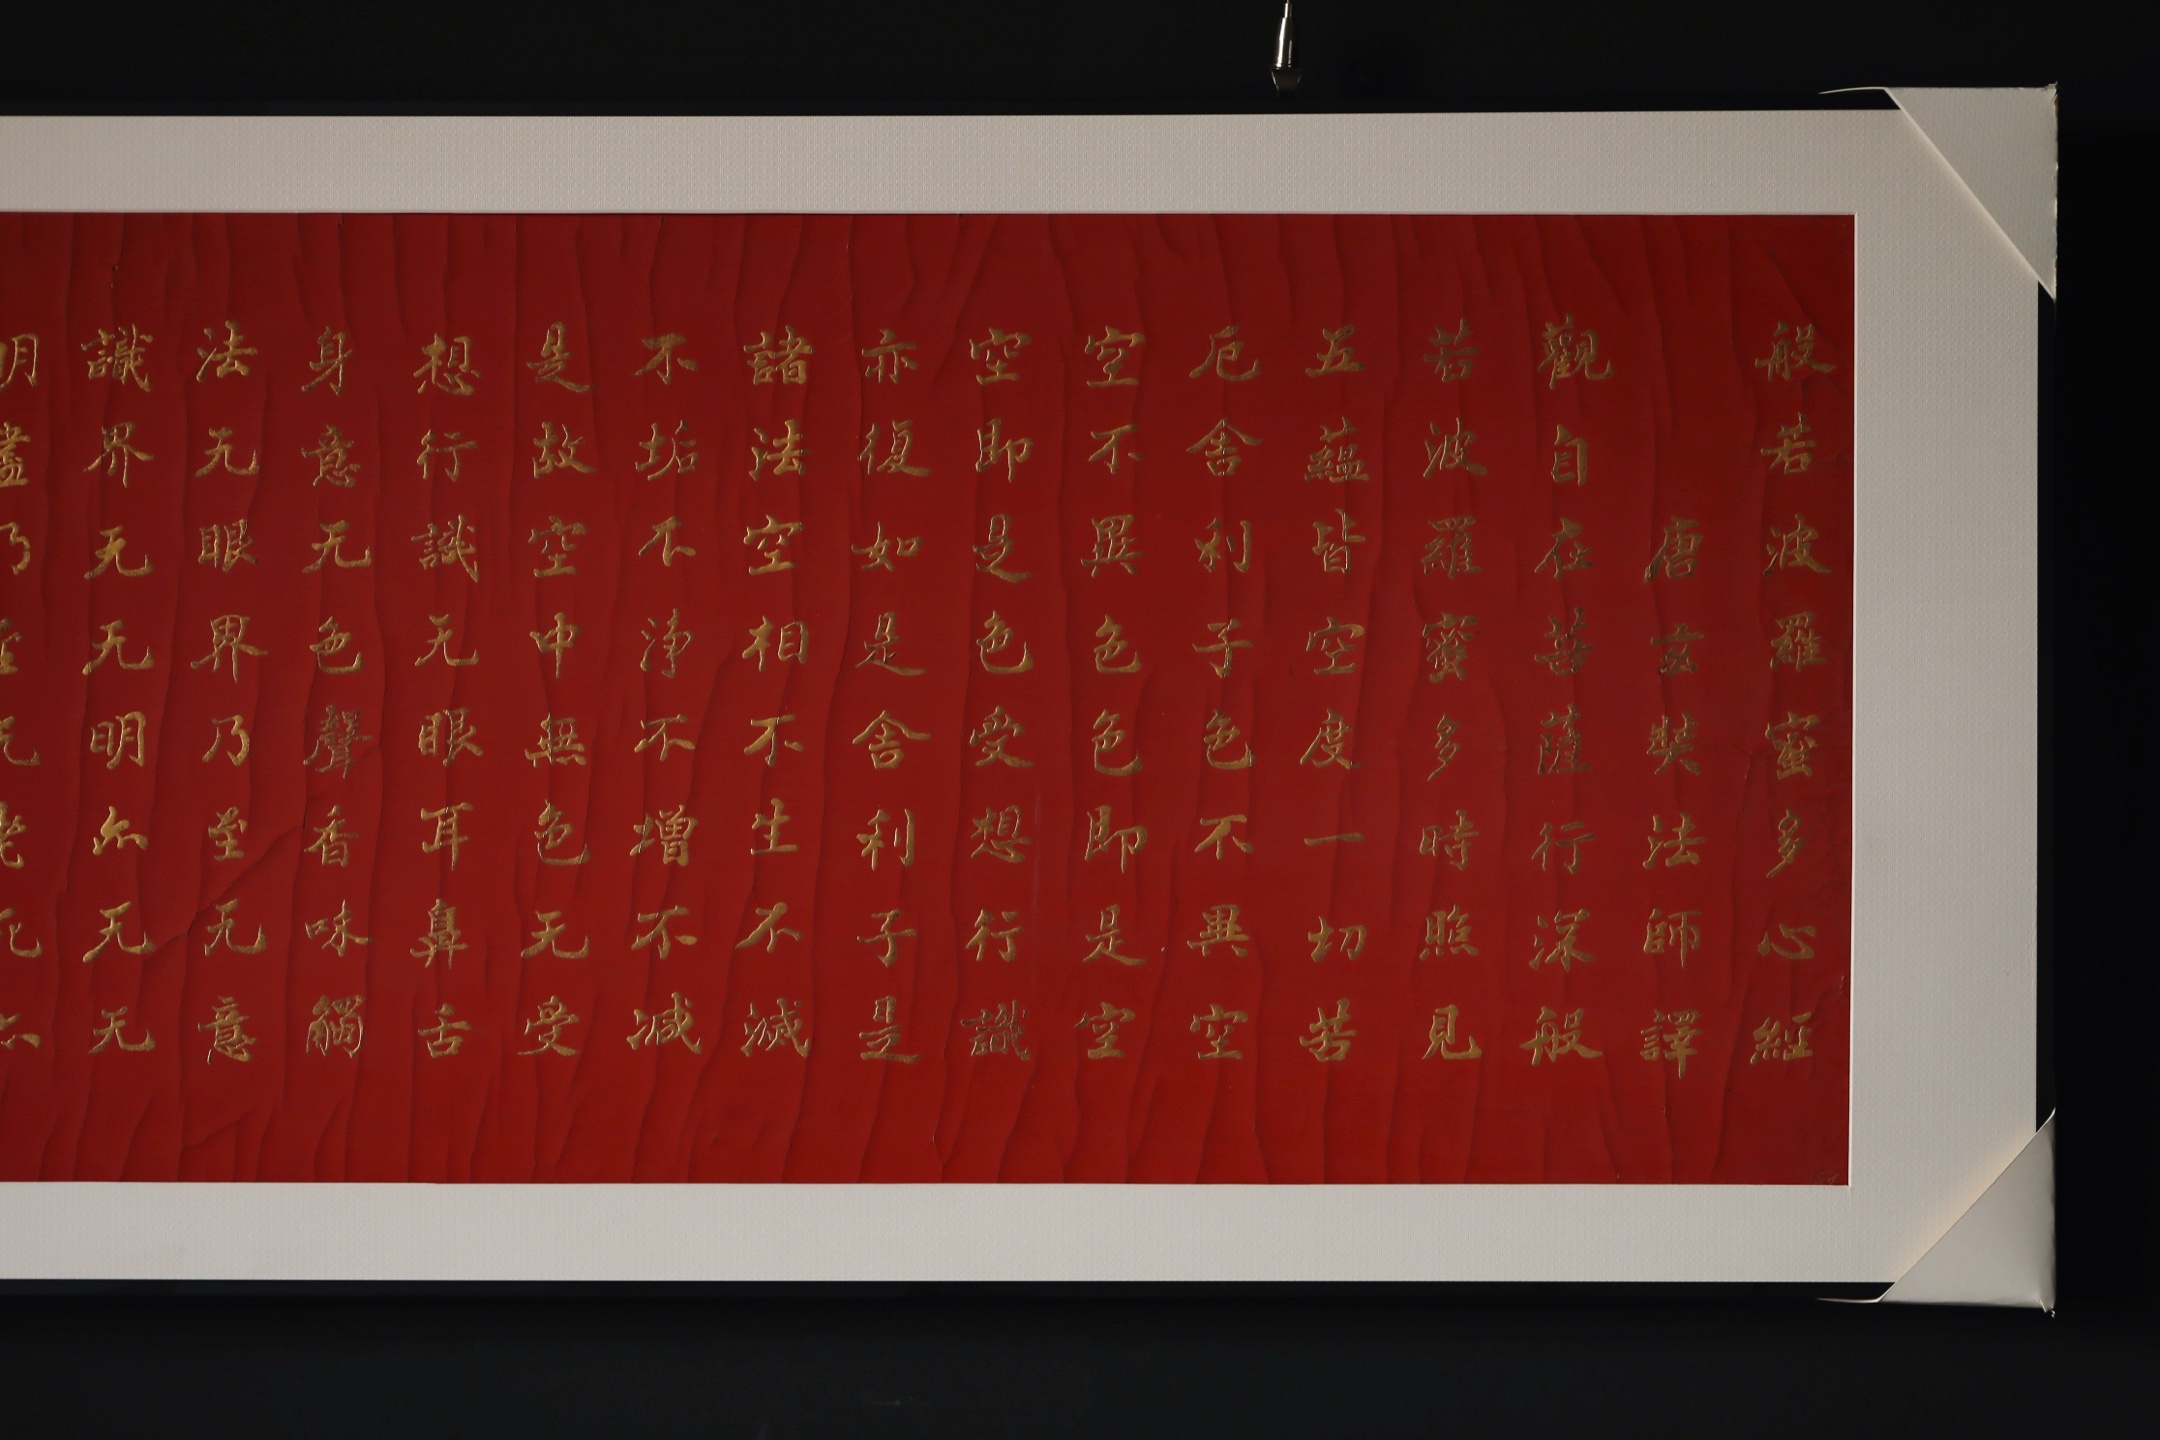 般若波羅蜜多心經
唐玄奘法師譯
觀自在菩薩行深般
若波羅蜜多時照見
五蘊皆空度一切苦
厄舍利子色不異空
空不異色色即是空
空即是色受想行識
亦復如是舍利子是
諸法空相不生不滅
不垢不淨不增不減
是故空中無色无受
想行識无眼耳鼻舌
身意无色聲香味觸
法无眼界乃至无意
識界无无明亦无无
明盡乃至无老死亦